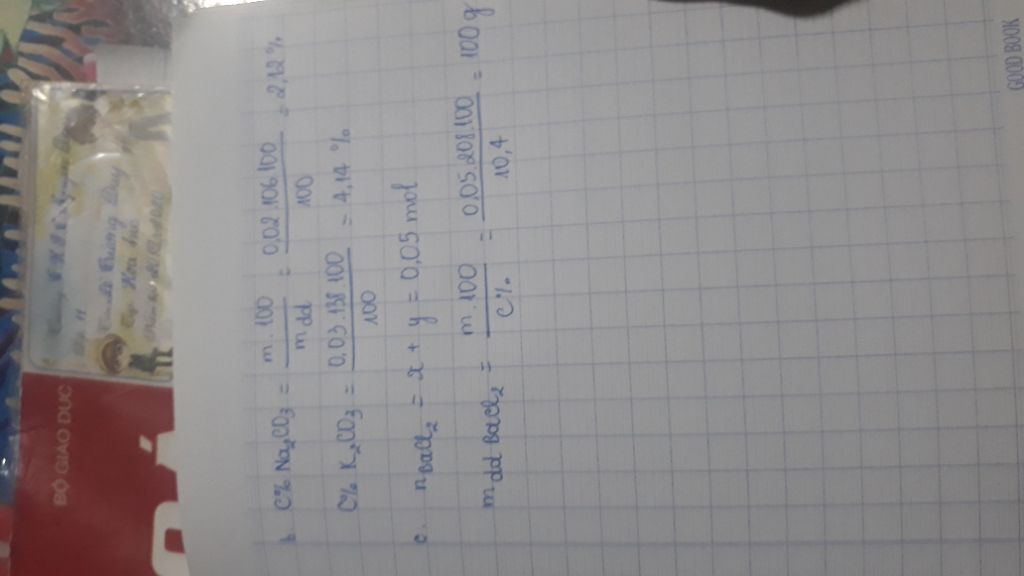 b. C% Na₂CO₃ = m.100 / m dd = 0,02.106.100 / 100 = 2,12%
C% K₂CO₃ = 0,03.138.100 / 100 = 4,14 %
c. n BaCl₂ = x + y = 0,05 mol
m dd BaCl₂ = m.100 / C% = 0,05.208.100 / 10,4 = 100 g
BỘ GIÁO DỤC
GOOD BOOK